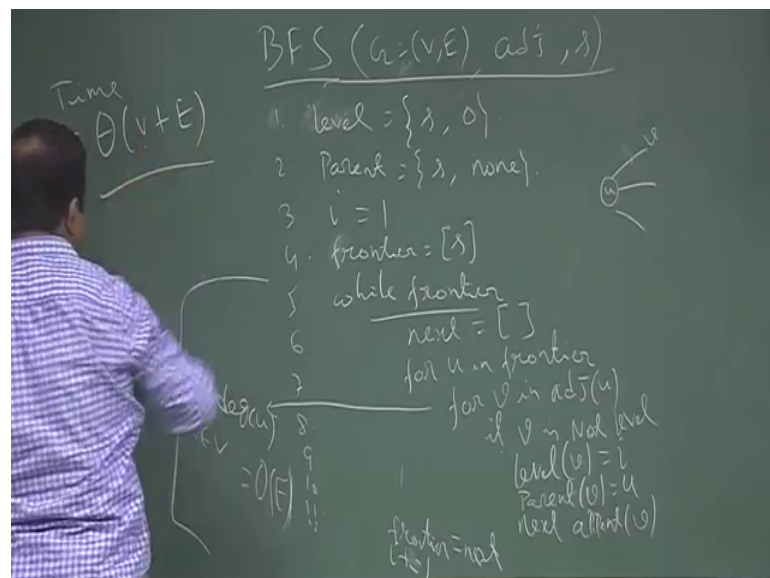 BFS (G=(V,E) adj, s)
Time
θ(V+E)
1. level = {s, 0}
2. Parent = {s, none}.
3 i = 1
4. frontier = [s]
5 while frontier
6. next = [ ]
7 for u in frontier
8. for v in adj(u)
9 if v in Not level
10 level(v) = i
11 Parent(v) = u
next append(v)
frontier = next
deg(u)
= O(E)
u
v